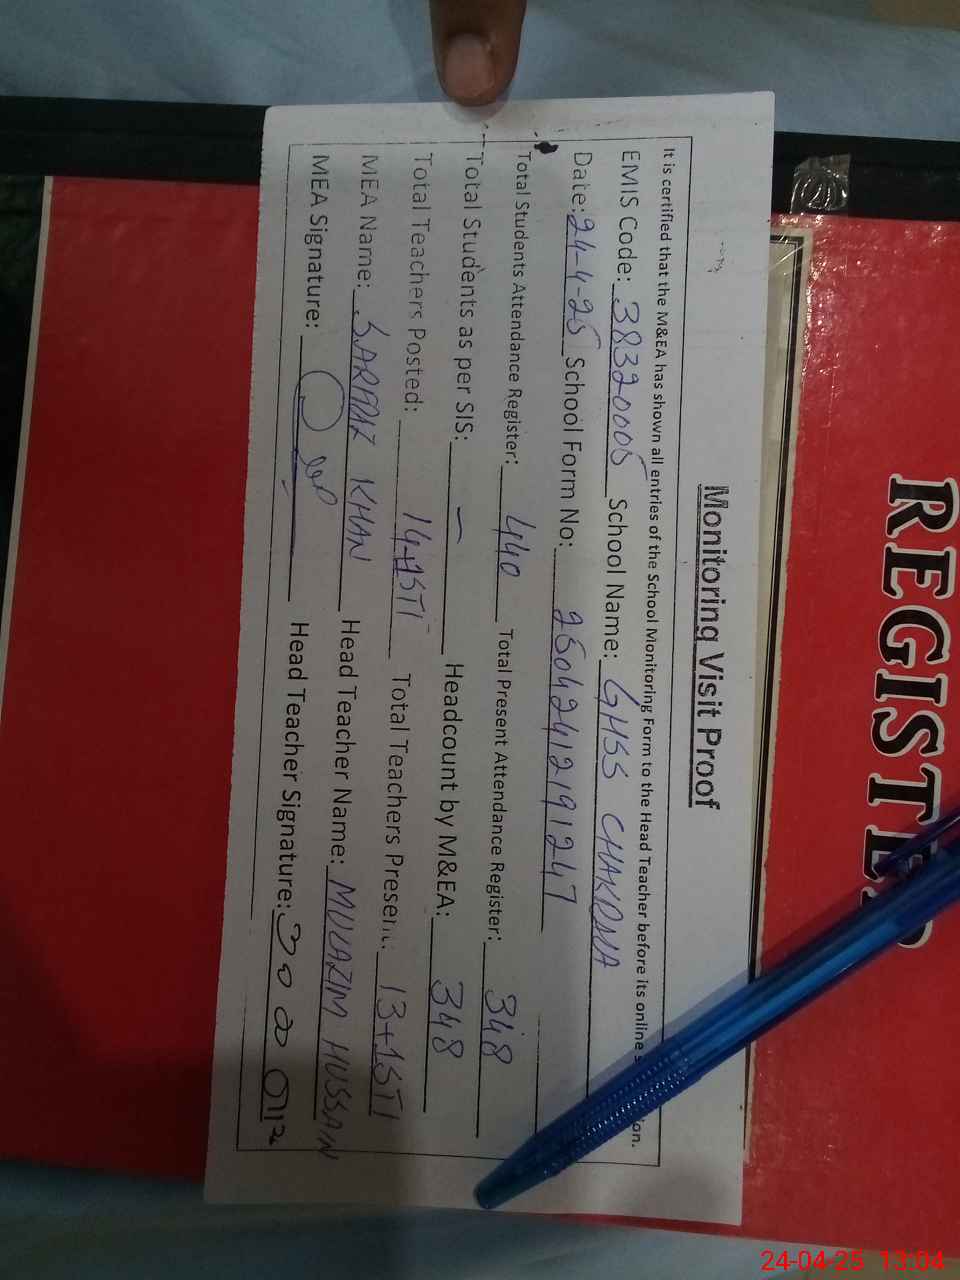 REGISTER
Monitoring Visit Proof
It is certified that the M&EA has shown all entries of the School Monitoring Form to the Head Teacher before its online
EMIS Code: 38320005 School Name: GHSS CHAKRALA
Date: 24-4-25 School Form No: 25042412191247
Total Students Attendance Register: 440 Total Present Attendance Register: 348
Total Students as per SIS: — Headcount by M&EA: 348
Total Teachers Posted: 14+1STI Total Teachers Present: 13+1STI
MEA Name: SARFARAZ KHAN Head Teacher Name: MULAZIM HUSSAIN
MEA Signature: Head Teacher Signature:
24-04-25 13:04